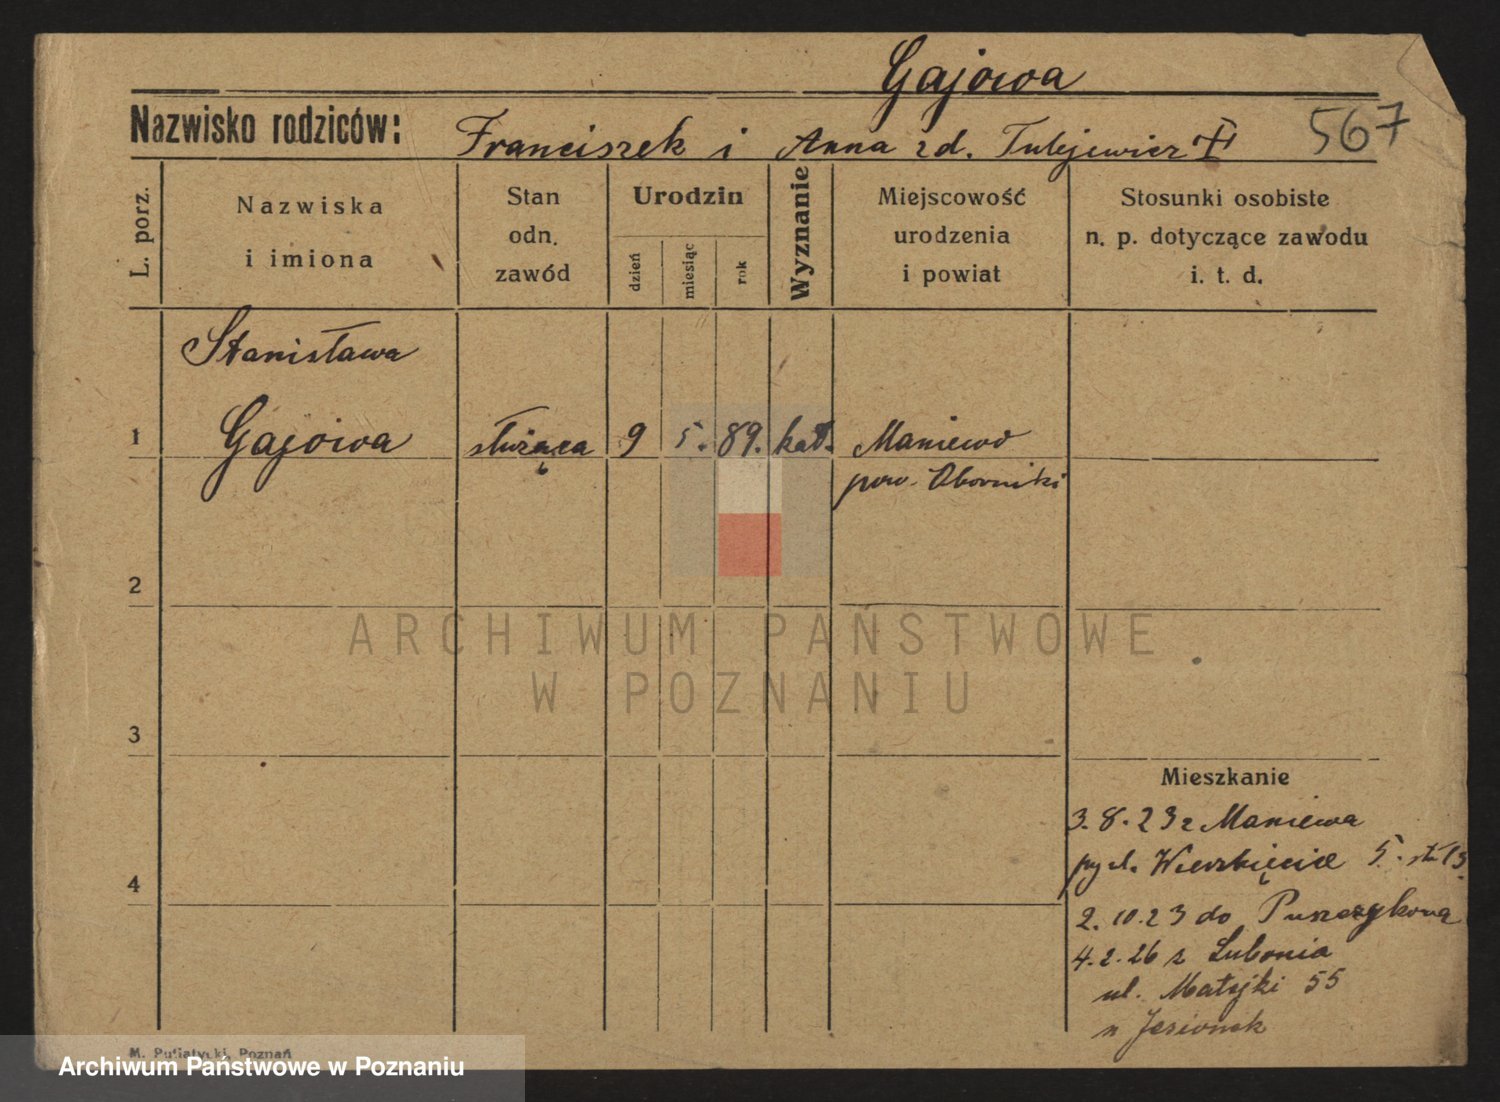 Gajowa
Nazwisko rodziców: Franciszek i Anna zd. Tulejewicz
567
L. porz.
Nazwiska
i imiona
Stan
odn.
zawód
Urodzin
dzień
miesiąc
rok
Wyznanie
Miejscowość
urodzenia
i powiat
Stosunki osobiste
n. p. dotyczące zawodu
i. t. d.
Stanisława
1 Gajowa służąca 9 5. 89. kat. Maniewo
pow. Oborniki
2
3
4
Mieszkanie
3.8.23 z Maniewa
Wierzbięcice 5.
2.10.23 do Puszczykowa
4.2.26 z Lubonia
ul. Matejki 55
n Jesionek
M. Putiatycki, Poznań
ARCHIWUM PAŃSTWOWE
W POZNANIU
Archiwum Państwowe w Poznaniu